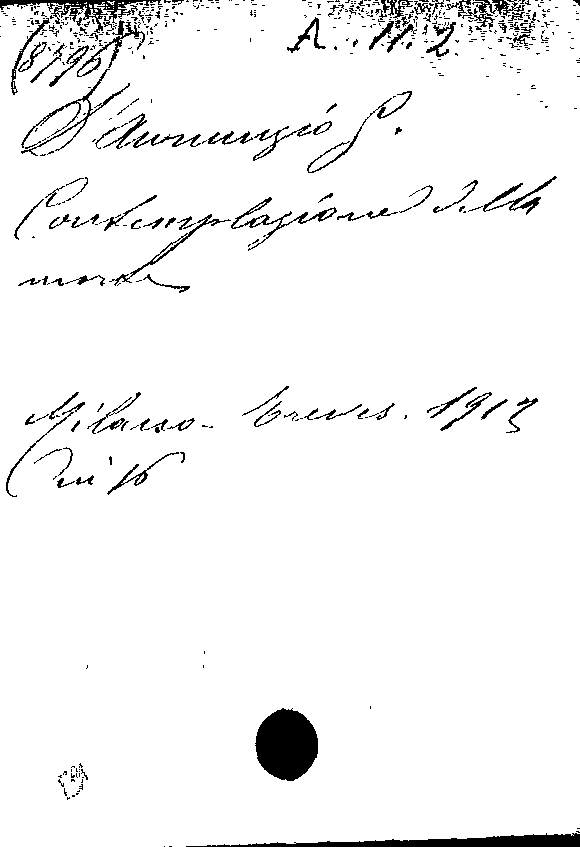 (8796) A. 11. 2
D'Annunzio G.
Contemplazione della
morte
Milano - Treves. 1913
in 16